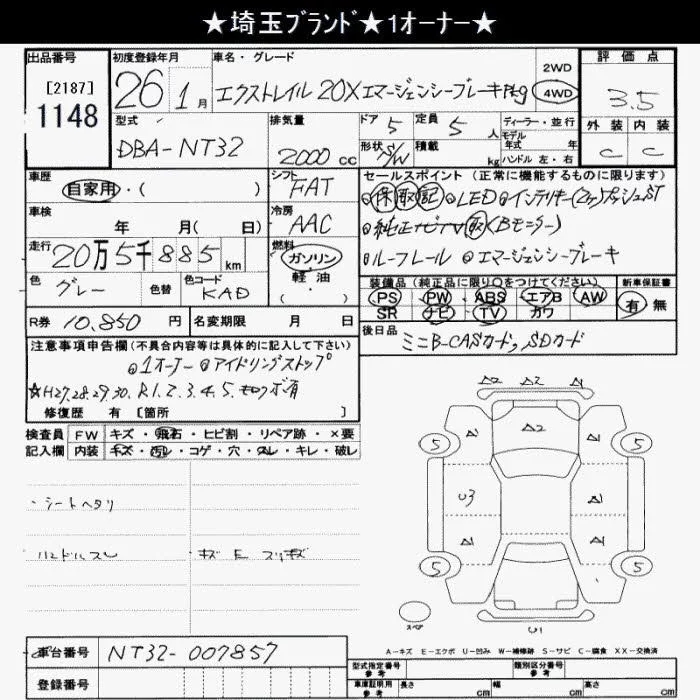 ★埼玉ブランド★1オーナー★
出品番号 初度登録年月 車名・グレード 2WD 4WD 評価点
[2187] 26年 1月 エクストレイル 20X エマージェンシーブレーキPkg 3.5
1148
型式 排気量 ドア 5 定員 5人 ディーラー・並行 外装 内装
DBA-NT32 2000cc 形状 S/W 積載 kg モデル年式 年 ハンドル 左・右 C C
車歴 シフト セールスポイント(正常に機能するものに限ります)
自家用・( ) FAT ◎保 取 記 ◎LED ◎インテリキー(2ヶ)プッシュST
車検 冷房 ◎純正ナビTV 取 (Bモニター)
年 月( 日) AAC
走行 燃料 ◎ルーフレール ◎エマージェンシーブレーキ
20万5千885km ガソリン
軽油
( ・ )
装備品(純正品に限り○をつけてください) 新車保証書
色 色替 色コード PS PW ABS エアB AW 有 無
グレー KAD SR ナビ TV カワ
R券 10.850円 名変期限 月 日 後日品
ミニB-CASカード, SDカード
注意事項申告欄(不具合内容等は具体的に記入して下さい)
◎1オーナー ◎アイドリングストップ
☆H27.28.29.30. R1.2.3.4.5. キロクボ有
修復歴 有 [箇所 ]
検査員 FW キズ・飛石・ヒビ割・リペア跡・×要
記入欄 内装 キズ・汚レ・コゲ・穴・スレ・キレ・破レ
・シートヘタリ
ハンドルスレ キズ E スリキズ
A2 A2 A2
A1 A2 A1
5 5
U3 A1
A1 A1
5 5
スペア
U1
A-キズ E-エクボ U-凹み W-補修跡 S-サビ C-腐食 XX-交換済
車台番号 NT32-007857
登録番号
型式指定番号 参考 類別区分番号 参考
車庫証明用 参考 長さ cm 幅 cm 高さ cm